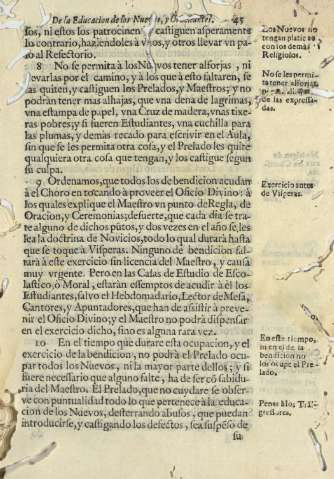 De la Educacion de los Nuevos, 45
los, ni estos los patrocinen, castiguen asperamente
lo contrario, haziendoles à vnos, y otros llevar vn pa-
lo al Refectorio.
8 No se permita à los Nuevos tener alforjas, ni
llevarlas por el camino, y à los que à esto faltaren, se
las quiten, y castiguen los Prelados, y Maestros; y no
podràn tener mas alhajas, que vna dena de lagrimas,
vna estampa de papel, vna Cruz de madera, vnas tixe-
ras pobres, y si fueren Estudiantes, vna cuchilla para
las plumas, y demàs recado para escrivir en el Aula,
sin que se les permita otra cosa, y el Prelado les quite
qualquiera otra cosa que tengan, y los castigue segun
su culpa.
9 Ordenamos, que todos los de bendicion acudan
à el Choro en tocando à proveer el Oficio Divino: à
los quales explique el Maestro vn punto de Regla, de
Oracion, y Ceremonias; de suerte, que cada dia se tra-
te alguno de dichos pũtos, y dos vezes en el año se les
lea la doctrina de Novicios, todo lo qual durarà hasta
que se toque à Visperas. Ninguno de bendicion fal-
tarà à este exercicio sin licencia del Maestro, y causa
muy vrgente. Pero en las Casas de Estudio de Esco-
lastico, ò Moral, estaràn essemptos de acudir à èl los
Estudiantes, salvo el Hebdomadario, Lector de Mesa,
Cantores, y Apuntadores, que han de assistir à preve-
nir el Oficio Divino, y el Maestro no podrà dispensar
en el exercicio dicho, sino es alguna rara vez.
10 En el tiempo que durare esta ocupacion, y el
exercicio de la bendicion, no podrà el Prelado ocu-
par todos los Nuevos, ni la mayor parte dellos; y si
fuere necessario que alguno falte, ha de ser cõ sabidu-
ria del Maestro. El Prelado, que no cuydare se obser-
ve con puntualidad todo lo que pertenece à la educa-
cion de los Nuevos, desterrando abusos, que puedan
introducirse, y castigando los defectos, sea suspẽso de
su
Los Nuevos no
tengan platicas
con los demàs
Religiosos.
No se les permi-
ta tener alforjas,
de las expressa-
das.
Exercicio antes
de Visperas.
En este tiempo,
ni en el de la
bendicion no
los ocupe el Pre-
lado.
Penas à los Trãs-
gressores.